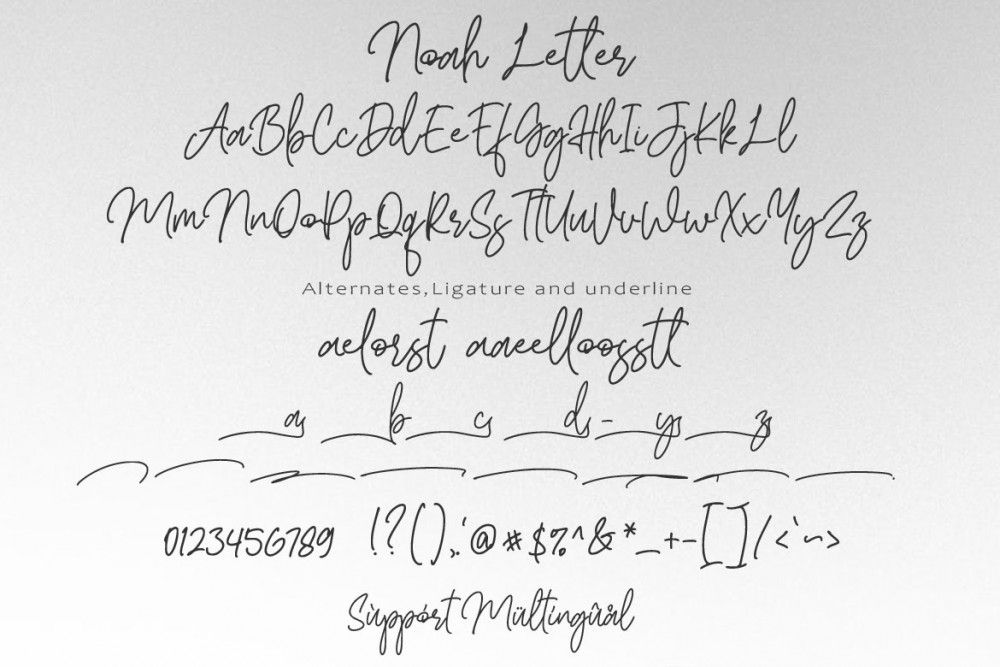 Noah Letter
AaBbCcDdEeFfGgHhIiJjKkLl
MmNnOoPpQqRrSsTtUuVvWwXxYyZz
Alternates,Ligature and underline
aelorst aaeelloosstt
a b c d - y z
0123456789 !?(),.'@#$%^&*_+-[]/<`~>
Sùppórt Mültingûål